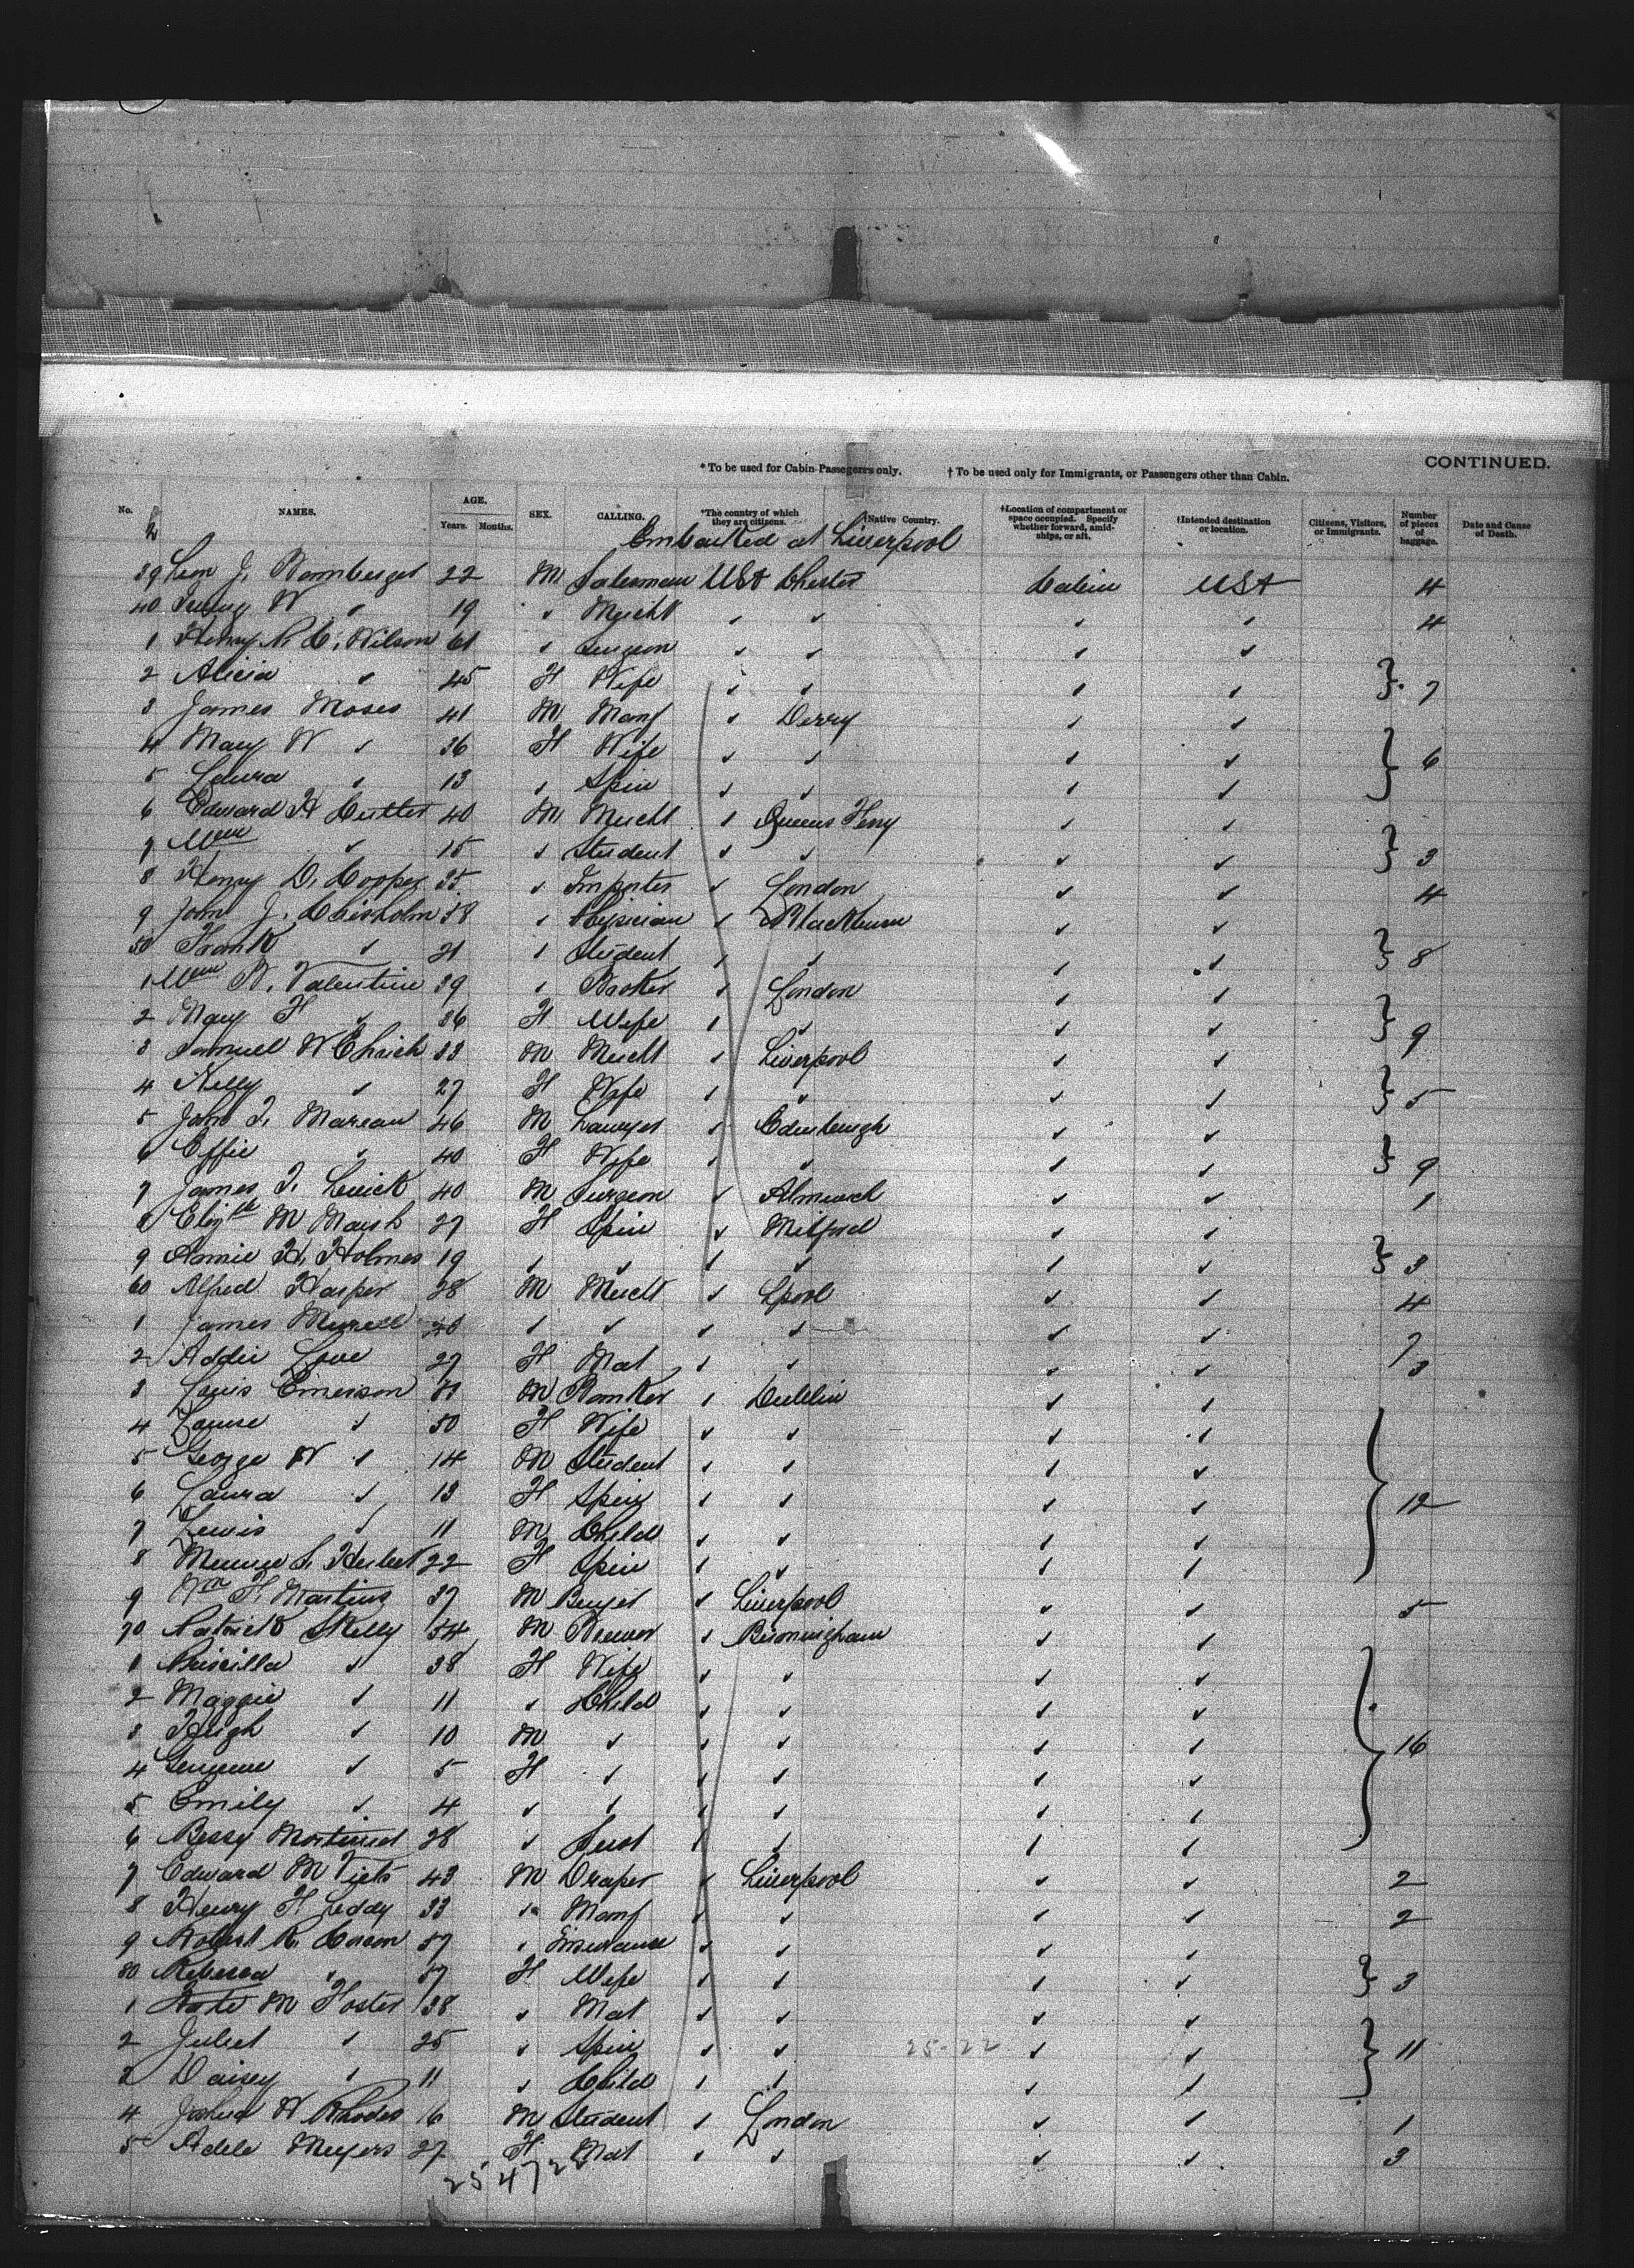 CONTINUED.
* To be used for Cabin Passengers only. † To be used only for Immigrants, or Passengers other than Cabin.
No. NAMES. AGE. Years. Months. SEX. CALLING. *The country of which they are citizens. *Native Country. †Location of compartment or space occupied. Specify whether forward, amidships, or aft. †Intended destination or location. Citizens, Visitors, or Immigrants. Number of pieces of baggage. Date and Cause of Death.
Embarked at Liverpool
39 Leon J. Bamberger 22 M Salesman USA Chester Cabin USA 4
40 W " 19 " Mercht " " " " 4
1 Henry P. C. Wilson 61 " Surgeon " " " "
2 Alicia " 45 F Wife " " " " } 7
3 James Moses 41 M Manf " Derry " "
4 Mary W " 36 F Wife " " " " } 6
5 Laura " 13 " Spin " " " "
6 Edward H Cutter 40 M Mercht " Queens Ferry " "
7 Wm " 15 " Student " " " " } 3
8 Henry D. Cooper 35 " Importer " London " " 4
9 John J. Chisholm 58 " Physician " Blackburn " "
50 Frank " 21 " Student " " " " } 8
1 Wm W. Valentine 39 " Broker " London " "
2 Mary F " 36 F Wife " " " " } 9
3 Samuel W Ehrich 33 M Mercht " Liverpool " "
4 Nelly " 27 F Wife " " " " } 5
5 John T. Mareau 46 M Lawyer " Edenburgh " "
6 Effie " 40 F Wife " " " " } 9
7 James T. 40 M Surgeon " " " 1
8 Elizth M Marsh 27 F Spin " Milford " "
9 Annie H. Holmes 19 " " " " " " } 3
60 Alfred Harper 28 M Mercht " Lpool " " 4
1 James " " " " " " 7
2 Addie Love 27 F Mat " " " " 3
3 Louis Emerson M Banker " Dublin " "
4 Louise " 50 F Wife " " " "
5 George W " 14 M Student " " " "
6 Laura " 13 F Spin " " " " } 12
7 Lewis " 11 M Child " " " "
8 22 F Spin " " " "
9 Wm H Martins 37 M Buyer " Liverpool " " 5
70 Patrick Skelly 54 M Brewer " Birmingham " "
1 Priscilla " 38 F Wife " " " "
2 Maggie " 11 " Child " " " "
3 Hugh " 10 M " " " " " } 16
4 " 5 F " " " " "
5 Emily " 4 " " " " " "
6 Bessy 28 " Servt " " " "
7 Edward M Viets 43 M Draper " Liverpool " " 2
8 Henry H Leddy 33 " Manf " " " " 2
9 Robert R. Corson 57 " Insurance " " " "
80 Rebecca " 57 F Wife " " " " } 3
1 Kate M Foster 38 " Mat " " " "
2 Juliet " 25 " Spin " " 25-22 " " } 11
3 Daisey " 11 " Child " " " "
4 Joshua W Rhodes 16 M Student " London " " 1
5 Adele Meyers 27 F Mat " " " " 3